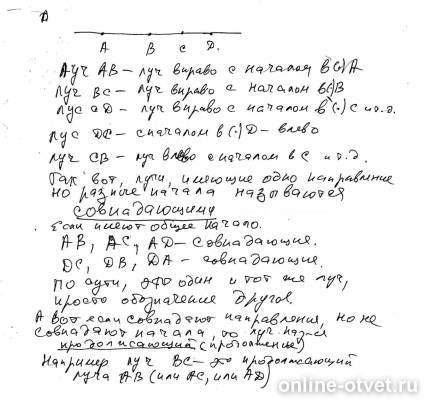 A B C D.
Луч AB – луч вправо с началом в (·) A
луч BC – луч вправо с началом в (·) B
луч CD – луч вправо с началом в (·) C и т.д.
луч DC – с началом в (·) D – влево
луч CB – луч влево с началом в C и т.д.
Так вот, лучи, имеющие одно направление
но разные начала называются
совпадающими
если имеют общее начало.
AB, AC, AD – совпадающие.
DC, DB, DA – совпадающие.
По сути, это один и тот же луч,
просто обозначение другое
А вот если совпадают направления, но не
совпадают начала, то луч наз-ся
продолжающий (продолжение)
Например луч BC – это продолжающий
луча AB (или AC, или AD)
online-otvet.ru